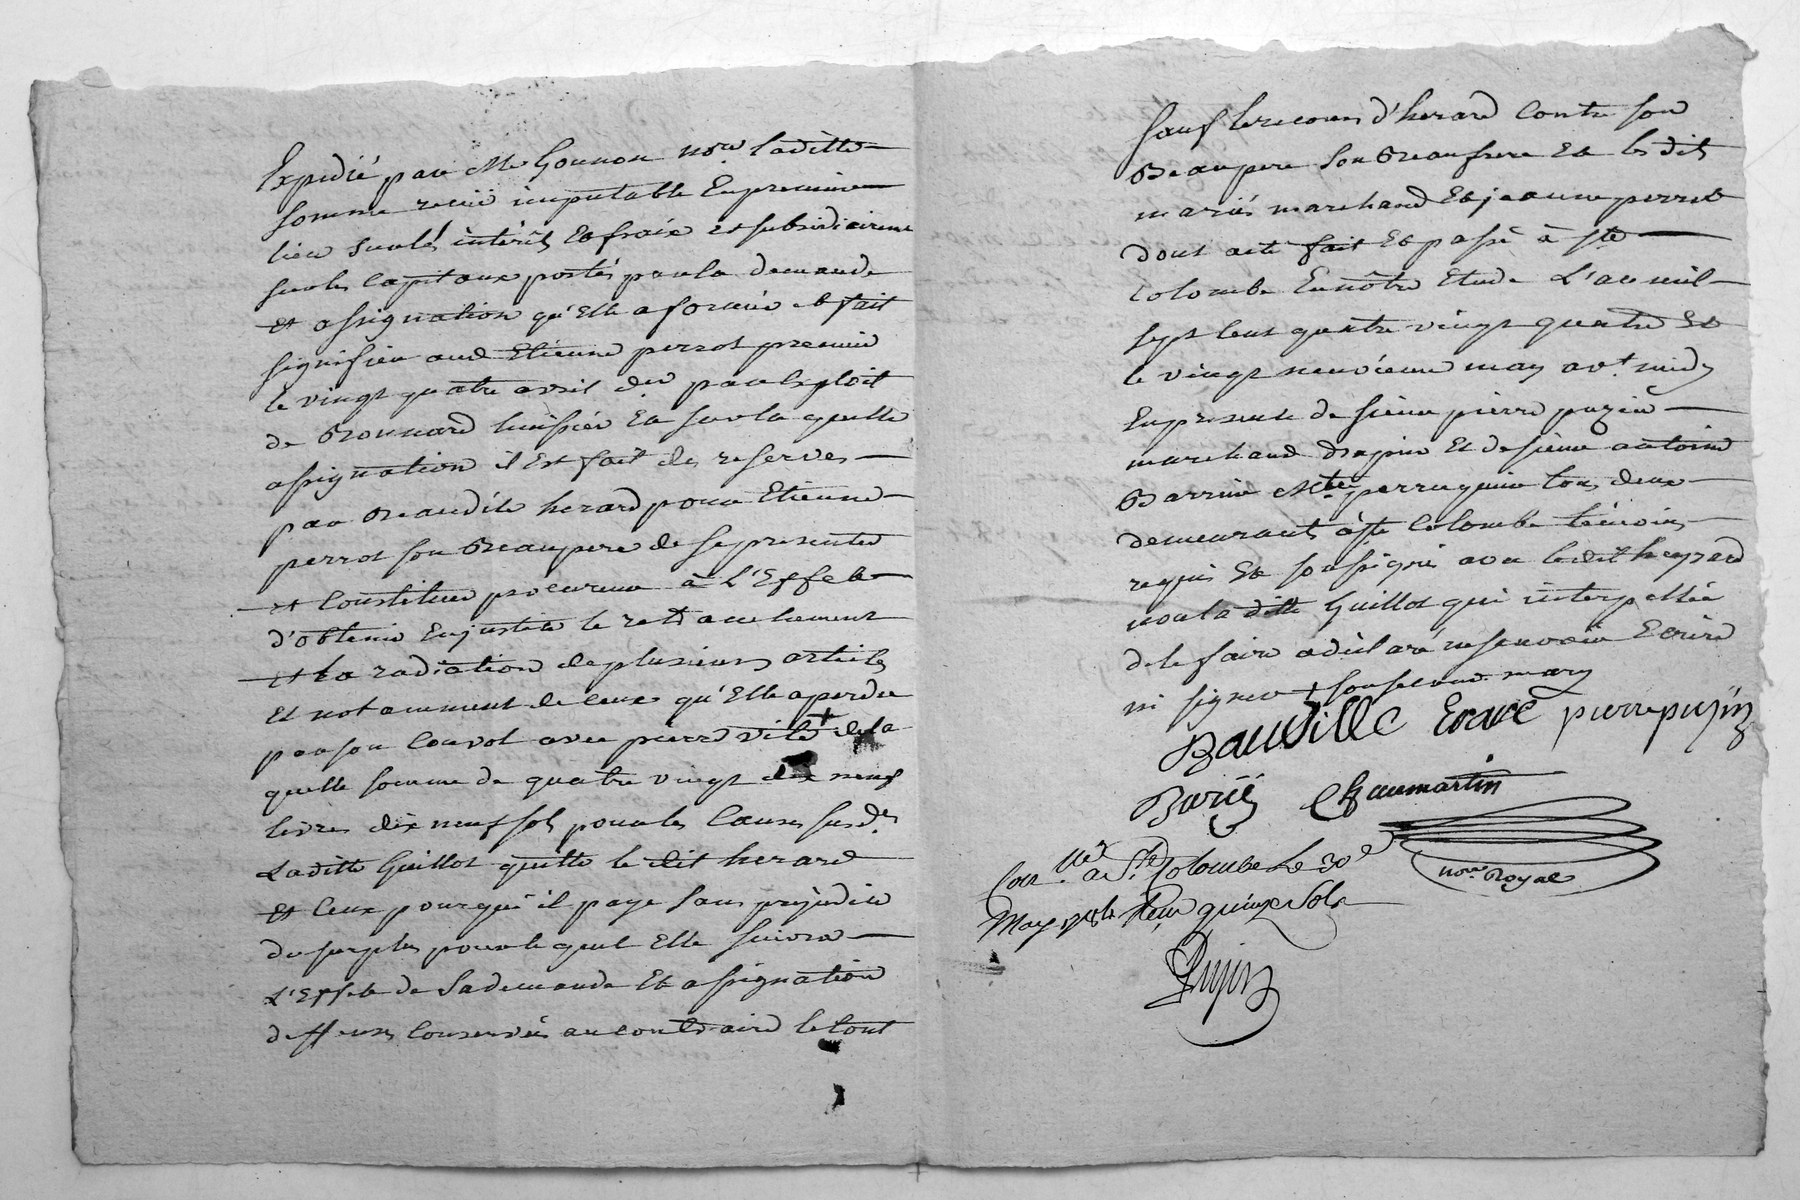 Expedié par Me Gounon nore laditte
somme recüe imputable En premier
lieu sur les intérêts Et fraix et subsidiairemt
sur les Capitaux portés par la demande
et assignation qu'Elle a formée et fait
signifier aud Etienne perrot premier
le vingt quatre avril der par Exploit
de Bonnard huissier Et sur la quelle
assignation il Est fait des reserves
par Beaudile herard pour Etienne
perrot son Beaupere de se presenter
et Constituer procureur à L'Effet
d'obtenir En justice le retranchement
et la radiation de plusieurs articles
Et notamment de ceux qu'Elle a perdu
par son Convol avec pierre vite + de la
quelle somme de quatre vingt dix neuf
livres dix neuf sols pour les Causes susdes
Laditte Guillot quitte le dit herard
et Ceux pour qui il paye sans prejudice
du surplus pour le quel Elle suivra
L'Effet de sa demande Et assignation
deffenses Conservées au contraire le tout
sauf le recours d'herard Contre son
Beaupere son Beaufrere Et les dits
mariés marchand Et jeanne perrot
dont acte fait Et passé à ste
Colombe En nôtre Etude L'an mil
sept Cent quatre vingt quatre Et
le vingt neuvieme may avt midy
En presence de sieur pierre puzin
marchand drapier Et de sieur antoine
Barrier Mtre perruquier tous deux
demeurants à ste Colombe témoins
requis Et soussignés avec le dit herard
non la ditte Guillot qui interpellée
de le faire a déclaré ne sçavoir Ecrire
ni signer + son second mary
Baudille Erare pierre puzin
Barié Chaumartin
nore Royal
Conllé a Ste Colombe Le 30e
May 1784 Reçu quinze Sols
Pujon